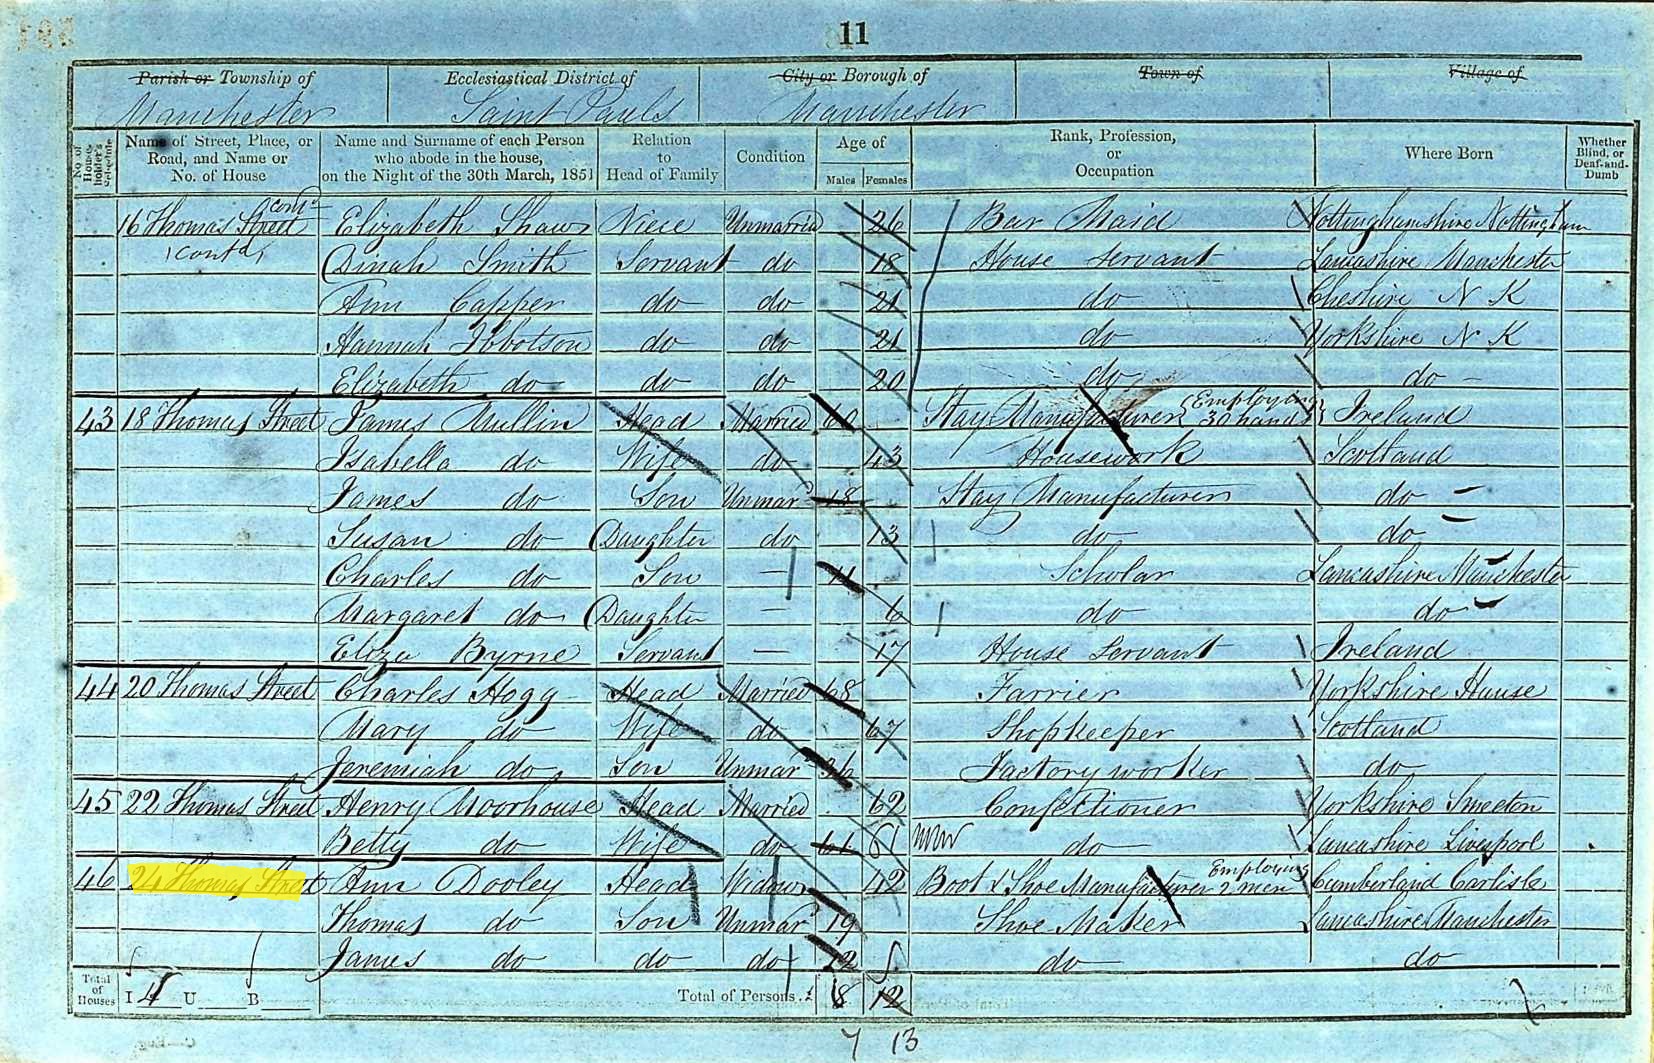 11
Parish or Township of Ecclesiastical District of City or Borough of Town of Village of
Manchester Saint Pauls Manchester
No. of House-holder's Schedule Name of Street, Place, or Road, and Name or No. of House Name and Surname of each Person who abode in the house, on the Night of the 30th March, 1851 Relation to Head of Family Condition Age of Males Females Rank, Profession, or Occupation Where Born Whether Blind, or Deaf-and-Dumb
16 Thomas Street Contd Elizabeth Shaw Niece Unmarried 26 Bar Maid Nottinghamshire Nottingham
(Contd) Dinah Smith Servant do 18 House Servant Lancashire Manchester
Ann Capper do do 21 do Cheshire N K
Hannah Ibbotson do do 21 do Yorkshire N K
Elizabeth do do do 20 do do
43 18 Thomas Street James Mullin Head Married 60 Stay Manufacturer (Employing 30 hands) Ireland
Isabella do Wife do 43 Housework Scotland
James do Son Unmar 18 Stay Manufacturer do
Susan do Daughter do 13 do do
Charles do Son — 11 Scholar Lancashire Manchester
Margaret do Daughter — 6 do do
Eliza Byrne Servant — 17 House Servant Ireland
44 20 Thomas Street Charles Hogg Head Married 68 Farrier Yorkshire
Mary do Wife do 67 Shopkeeper Scotland
Jeremiah do Son Unmar 36 Factory worker do
45 22 Thomas Street Henry Moorhouse Head Married 62 Confectioner Yorkshire Smeeton
Betty do Wife do 61 61 do Lancashire Liverpool
46 24 Thomas Street Ann Dooley Head Widow 42 Boot & Shoe Manufacturer Employing 2 men Cumberland Carlisle
Thomas do Son Unmar 19 Shoe Maker Lancashire Manchester
James do do do 12 do do
Total of Houses I 4 U B Total of Persons 8 12
7 13